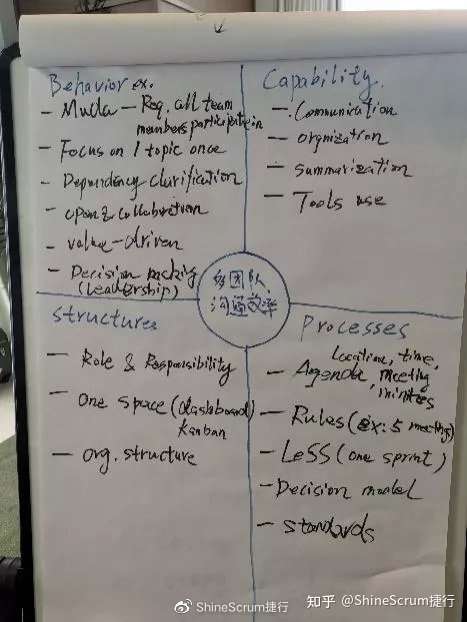 Behavior ex.
- Muda - Req. all team
members participate in
- Focus on 1 topic once
- Dependency clarification
- open & collaboration
- value-driven
- Decision making
(leadership)
Capability.
- Communication
- orgnization
- summarization
- Tools use
多团队
沟通效率
Structures
- Role & Responsibility
- One space (dashboard)
kanban
- org. structure
Processes
location, time,
- Agenda, meeting
minutes
- Rules (ex: 5 meetings)
- LeSS (one sprint)
- Decision model
- standards
ShineScrum捷行
知乎 @ShineScrum捷行